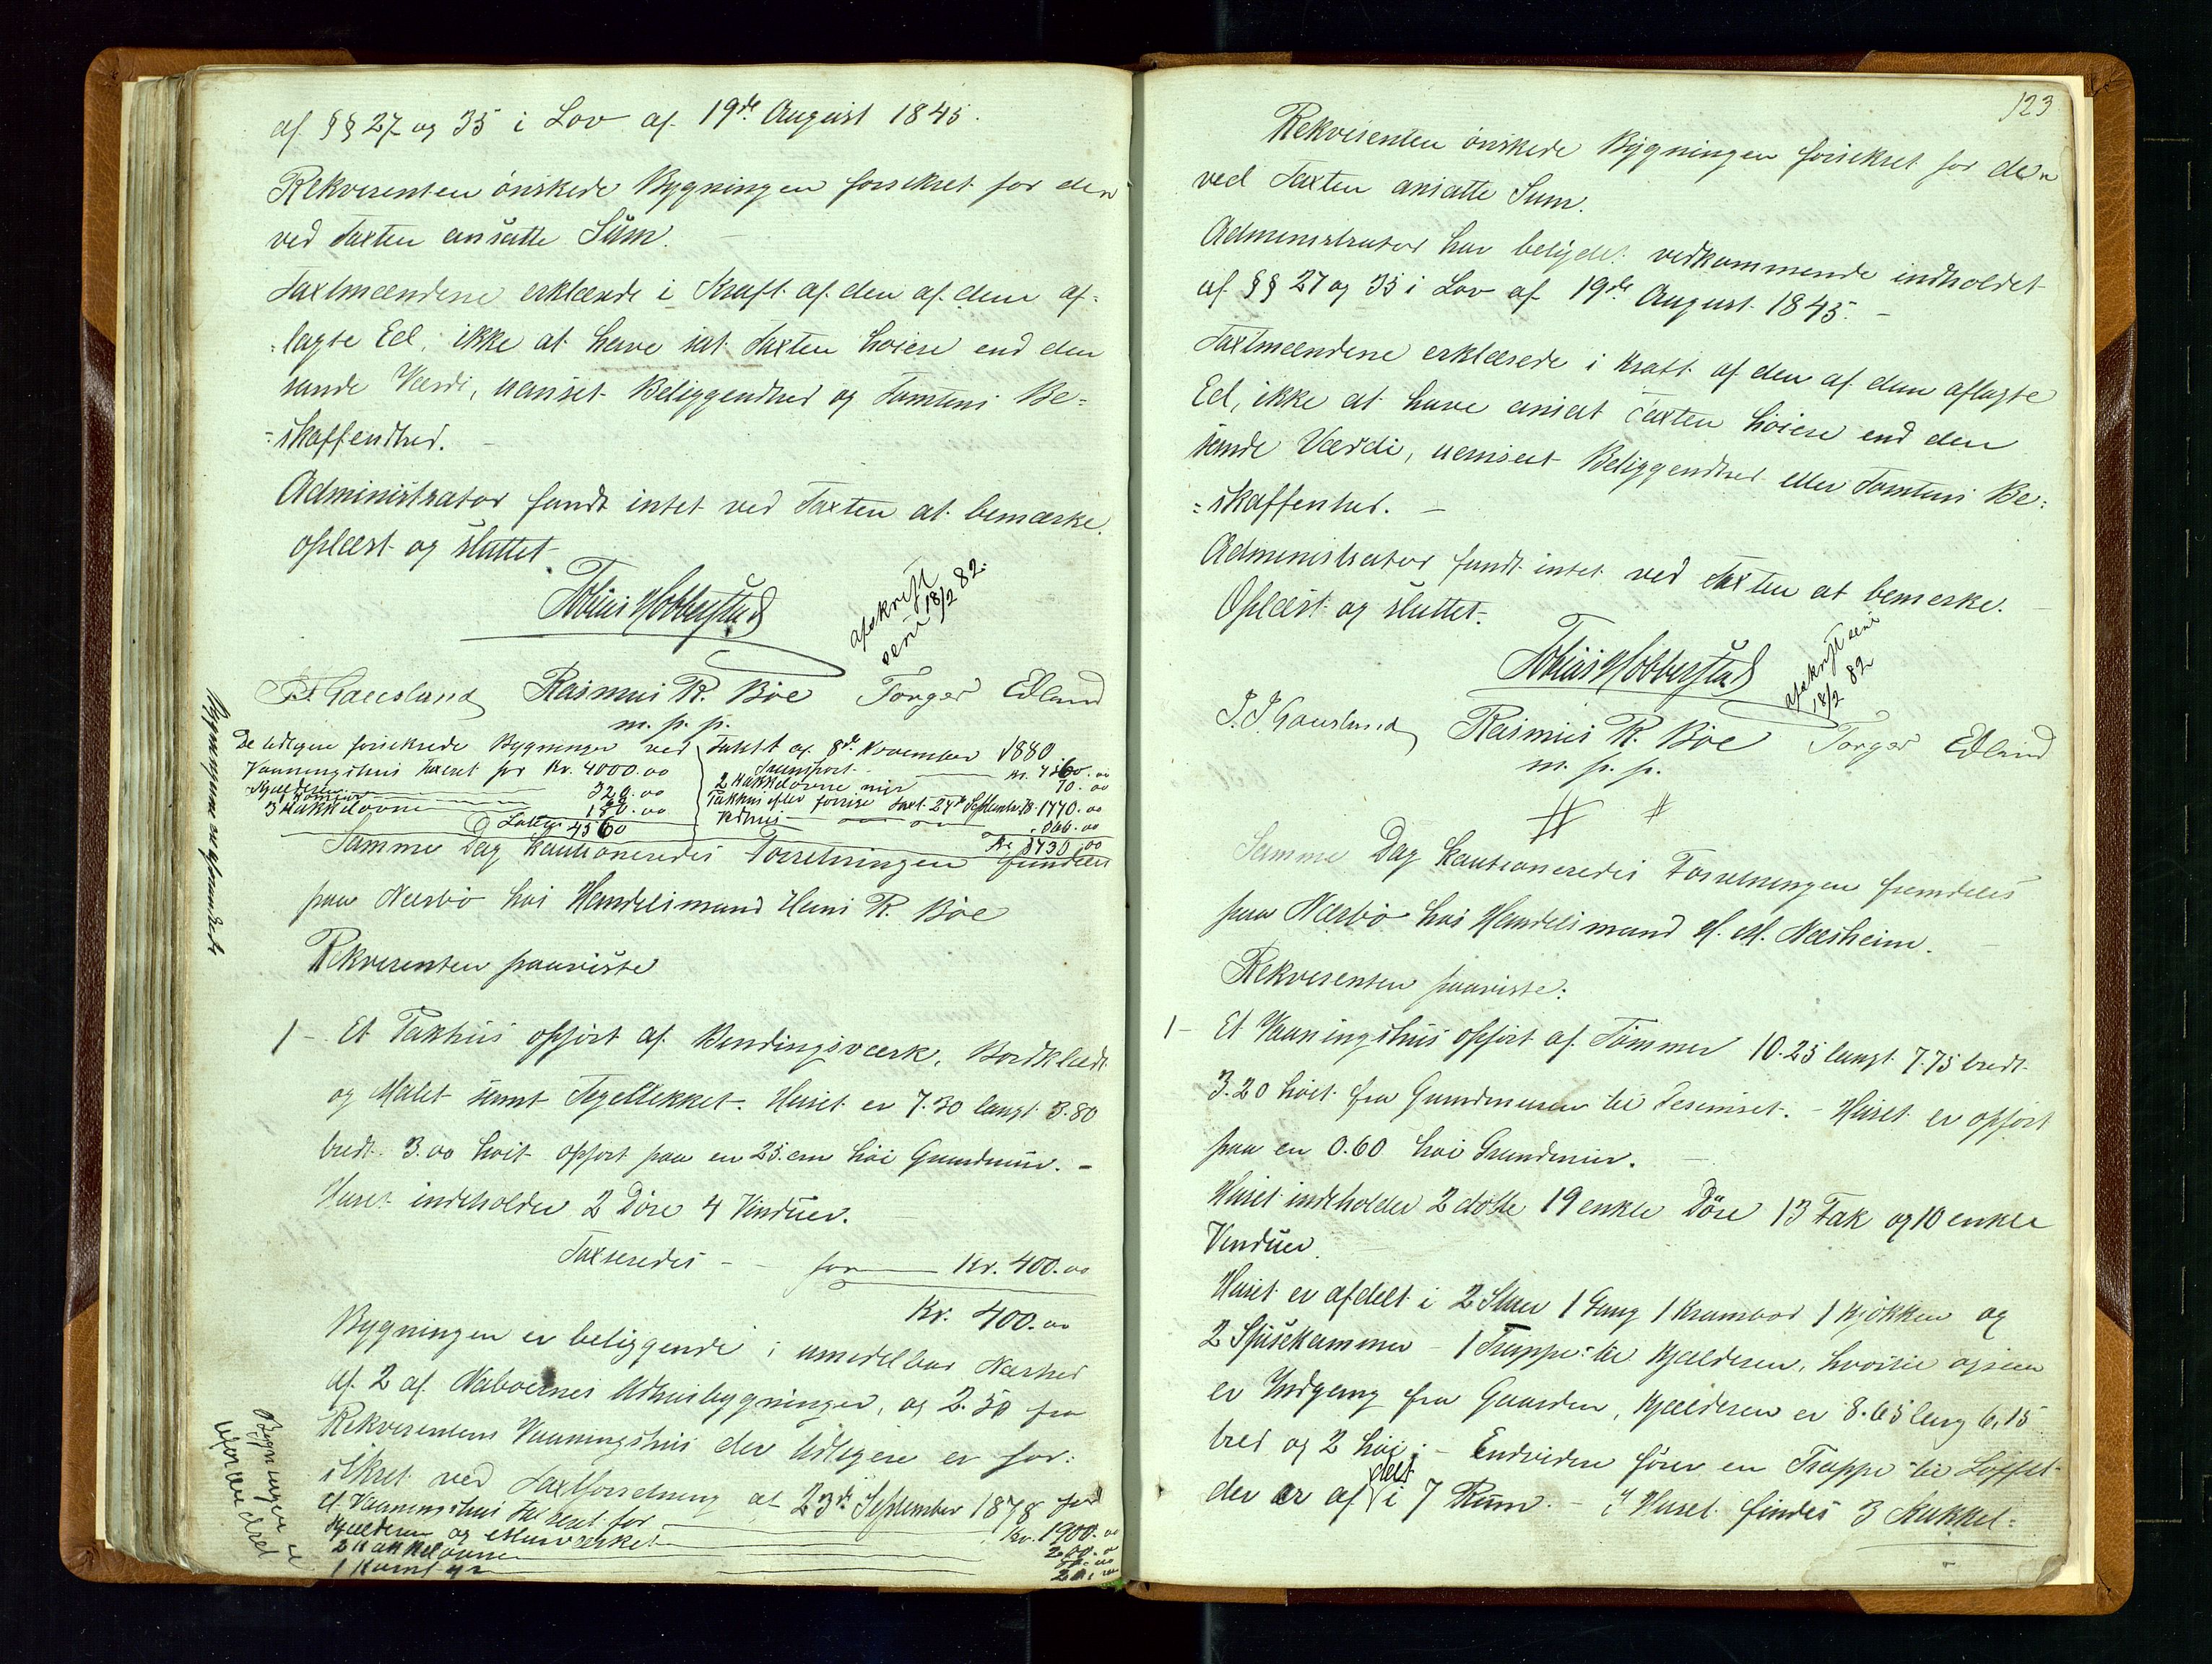 af §§ 27 og 35 i Lov af 19de August 1845.
Rekvirenten ønskede Bygningen forsikret for den
ved Taxten ansatte Sum.
Taxtmændene erklærede i Kraft af den af dem af=
=lagte Ed, ikke at have sat Taxten høiere end den
sande Værdi, uanset Beliggenhed og Tomtens Be=
=skaffendhed. -
Administrator fandt intet ved Taxten at bemærke.
Oplæst og sluttet.
Tobias Hobberstad
afskrift
send 18/2 82.
Gausland Rasmus R. Bøe Torger Edland
m. p. p.
De tidligere forsikrede Bygninger ved Taxt af 8de November 1880
Vaaningshus taxeret for Kr. 4000.00
Kjælderen 320.00
1 Komfur
3 Kakkelovne 180.00
Lateris 4560
Transport Kr. 4560.00
2 Kakkelovne mer 70.00
Pakhus efter forrige Taxt 24de Septembr 78 1770.00
Vedhus
Kr 8730.00
Bygningerne er uforandret
Samme Dag kautioneredes Forretningen fremdeles
paa Nærbø hos Handelsmand Hans R. Bøe
Rekvirenten paaviste
1 - Et Pakhus opført af Bendingsværk, Bordklædt
og Malet samt Tegeltekket. Huset er 7.30 langt 3.80
bredt 3.00 høit opført paa en 25 cm høi Grundmur. -
Huset indeholder 2 Døre 4 Vinduer.
Taxseredes - - for Kr. 400.00
Kr. 400.00
Bygningen er beliggende i umidelbar Nærhed
af 2 af Naboernes Udhusbygninger, og 2.50 fra
Rekvirentens Vaaningshus der tidligere er for=
sikret ved Taxtforretning af 23de September 1878 for
et Vaaningshus taxeret for Kr. 1900.00
Kjælderen og Murværket 200.00
2 Kakkelovne
1 Komfyr 20.00
Bygningen er
uforandret
123
Rekvirenten ønskede Bygningen forsikret for den
ved Taxten ansatte Sum.
Administrator har betydet vedkommende indholdet
af §§ 27 og 35 i Lov af 19de August 1845. -
Taxtmændene erklærede i Kraft af den af dem aflagte
Ed, ikke at have ansat Taxten høiere end den
sande Værdi, uanseet Beliggendhed eller Tomtens Be=
=skaffenhed. -
Administrator fandt intet ved Taxten at bemerke.
Oplæst og sluttet.
Tobias Hobberstad
afskrift send
18/2 82
J. J. Gausland Rasmus R. Bøe Torger Edland
m. p. p.
Samme Dag kautioneredes Forretningen fremdeles
paa Nærbø hos Handelsmand H. M. Næsheim.
Rekvirenten paaviste:
1 - Et Vaaningshus opført af Tømmer 10.25 langt 7.75 bredt
3.20 høit fra Grundmuren til Gesemset. - Huset er opført
paa en 0.60 høi Grundmur.
Huset indeholder 2 doble 19 enkle Døre 13 Fak og 10 enkle
Vinduer.
Huset er afdelt i 2 Stuer 1 Gang 1 Krambod 1 Kjøkken og
2 Spisekammer - 1 Trappe til Kjælderen, hvortil ogsaa
er Indgang fra Gaarden, Kjælderen er 8.65 lang 6.15
bred og 2 høi. - Endvidere fører en Trappe til Loftet
der er afdelt i 7 Rum. - I Huset findes 3 Kakkel=